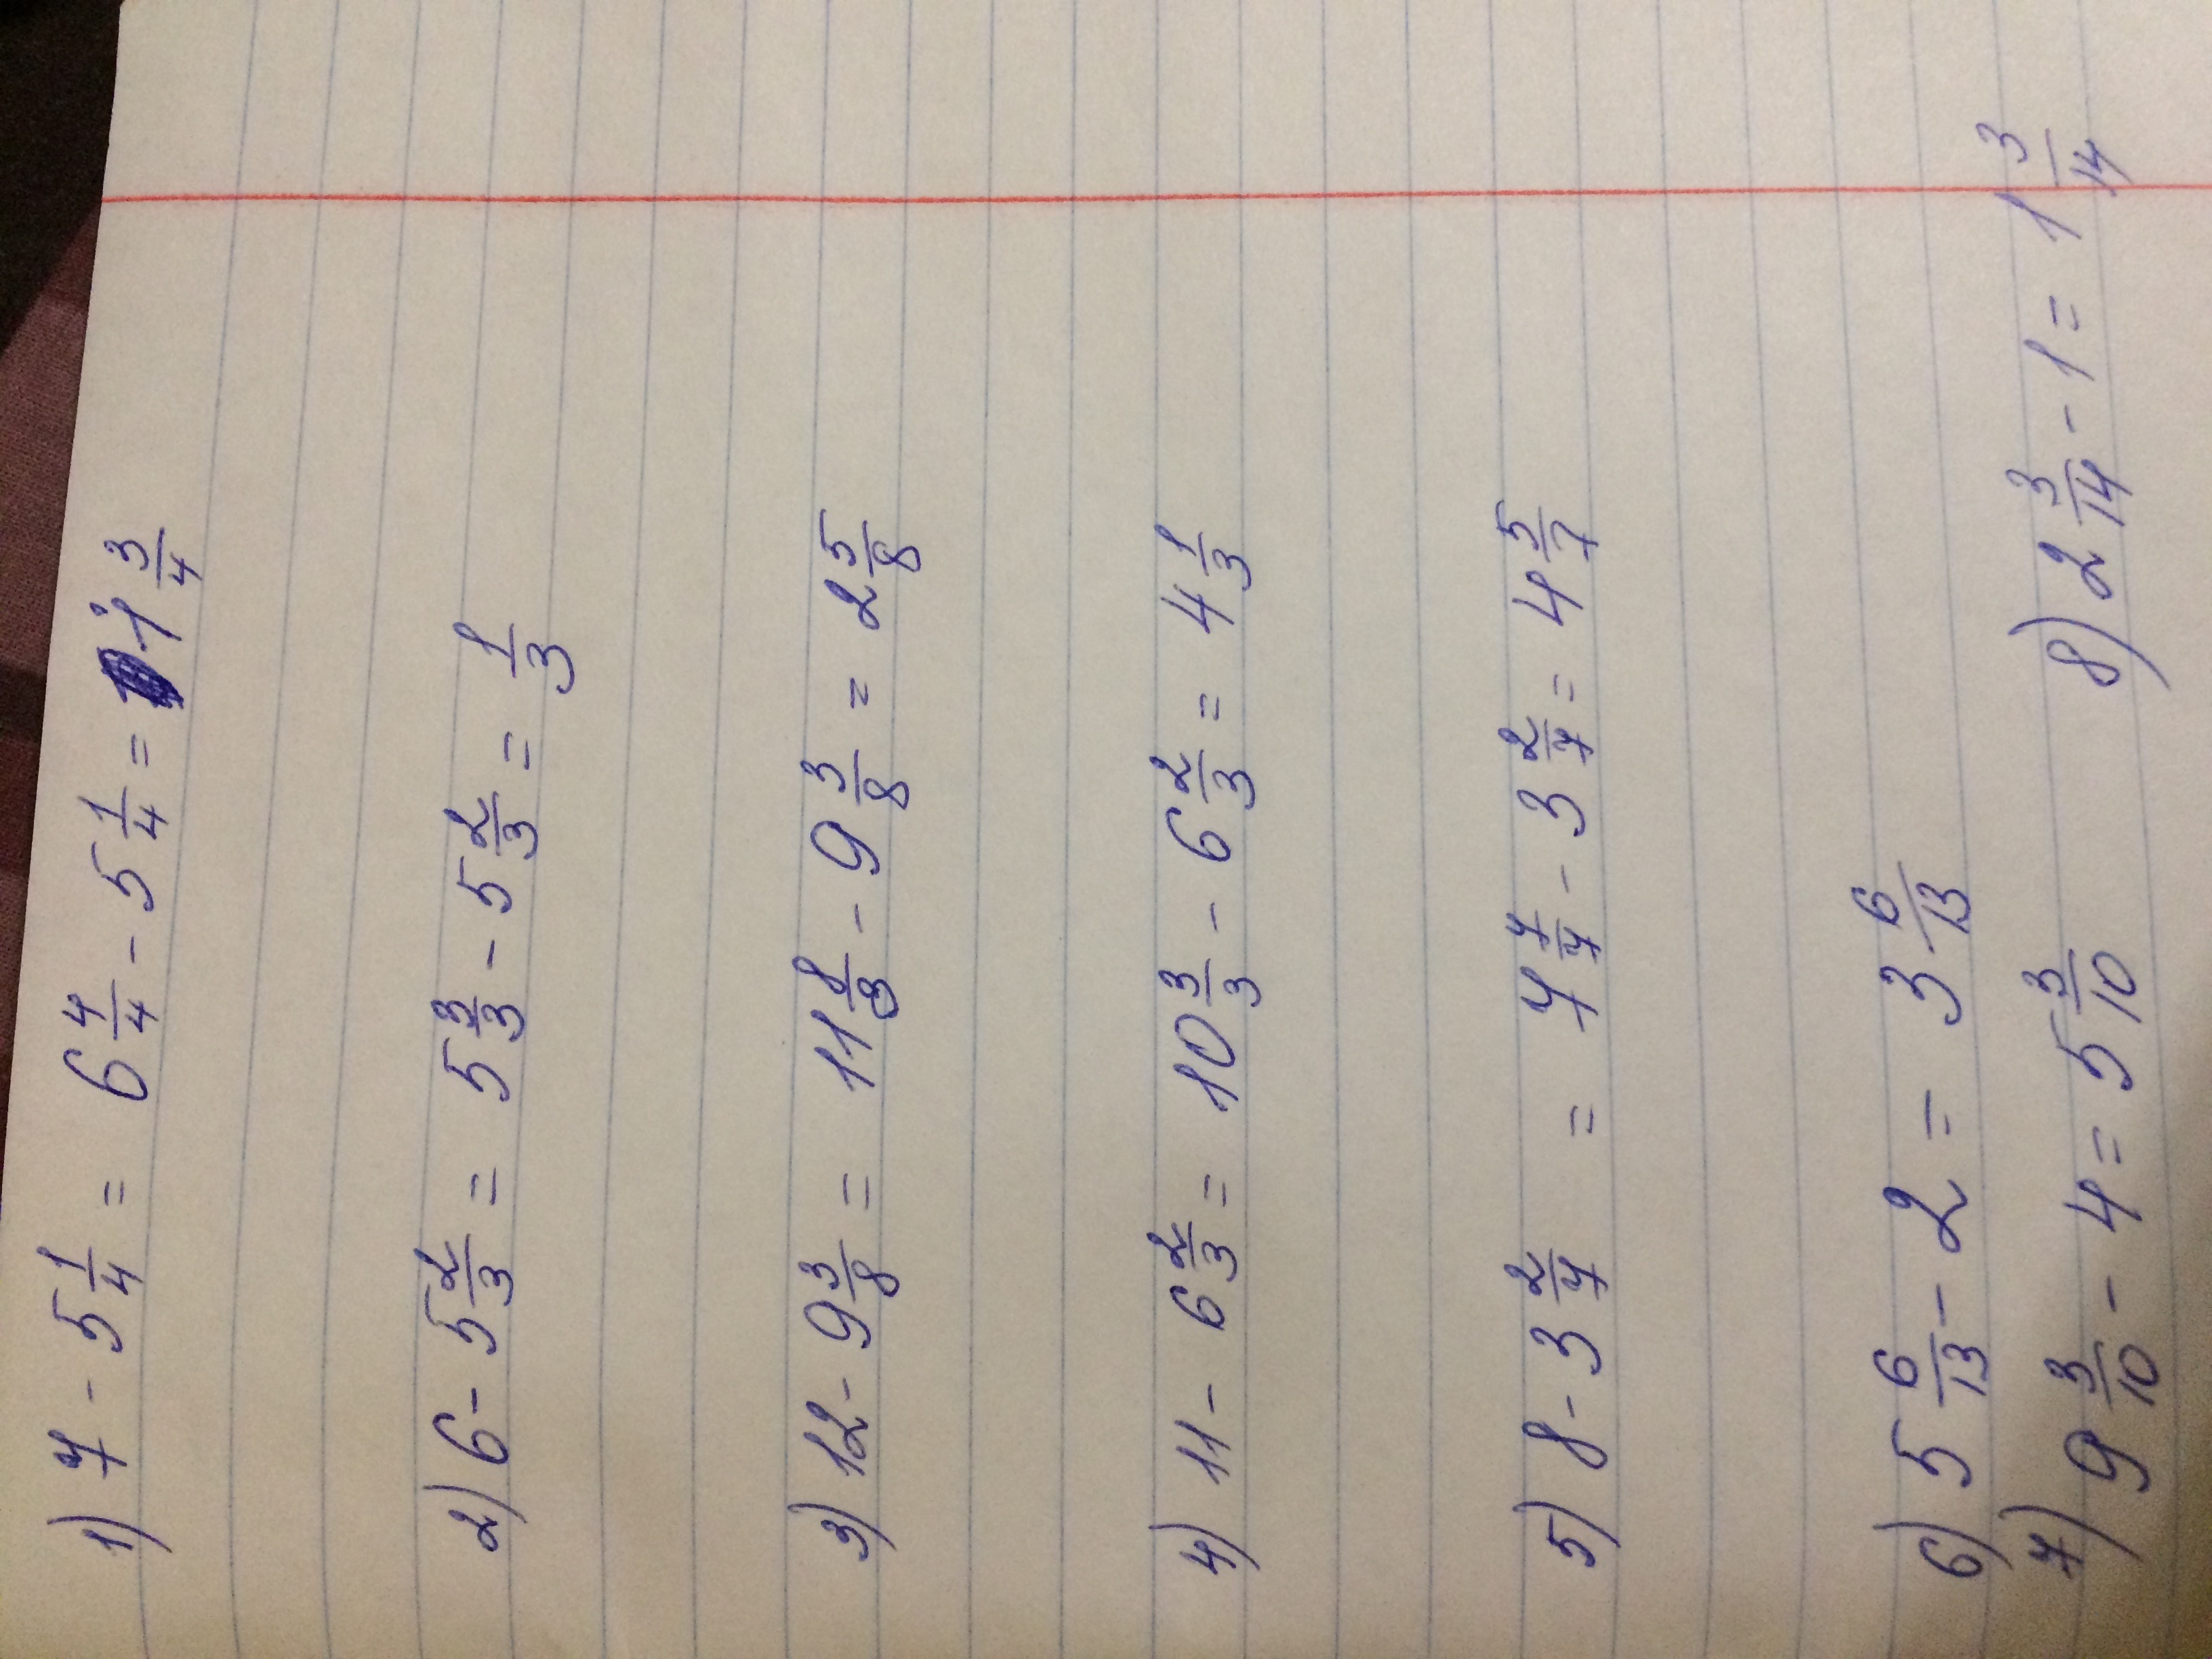 1) 7 - 5 1/4 = 6 4/4 - 5 1/4 = 1 3/4
2) 6 - 5 2/3 = 5 3/3 - 5 2/3 = 1/3
3) 12 - 9 3/8 = 11 8/8 - 9 3/8 = 2 5/8
4) 11 - 6 2/3 = 10 3/3 - 6 2/3 = 4 1/3
5) 8 - 3 2/7 = 7 7/7 - 3 2/7 = 4 5/7
6) 5 6/13 - 2 = 3 6/13
7) 9 3/10 - 4 = 5 3/10 8) 2 3/14 - 1 = 1 3/14